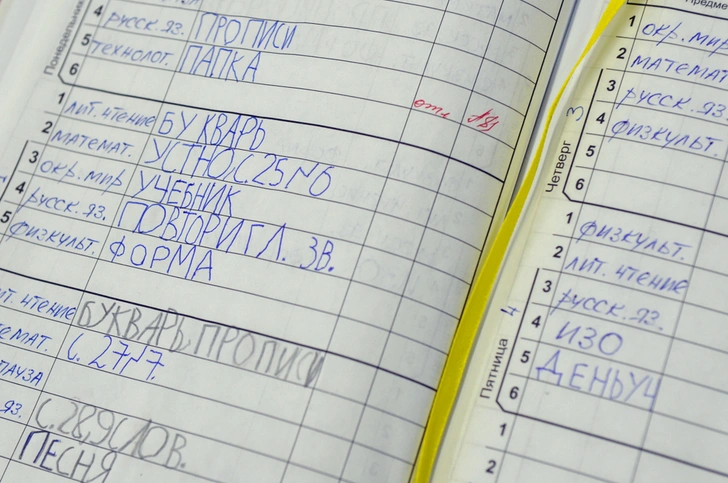 Понедельник
4 русск. яз. ПРОПИСИ
5 технолог. ПАПКА
6
1 лит. чтение БУКВАРЬ
2 математ. УСТНО С.25 №6
3 окр. мир УЧЕБНИК
4 русск. яз. ПОВТОРИ ГЛ. ЗВ.
5 физкульт. ФОРМА
чтение БУКВАРЬ, ПРОПИСИ
С. 27 №7.
ПАУЗА
яз. С.28, 9 СЛОВ.
ПЕСНЯ
Четверг 3
1 окр. мир
2 математ
3 русск. яз.
4 физкульт.
5
6
Пятница 4
1 физкульт.
2 лит. чтение
3 русск. яз.
4 ИЗО
5 ДЕНЬ УЧ
6
1
2